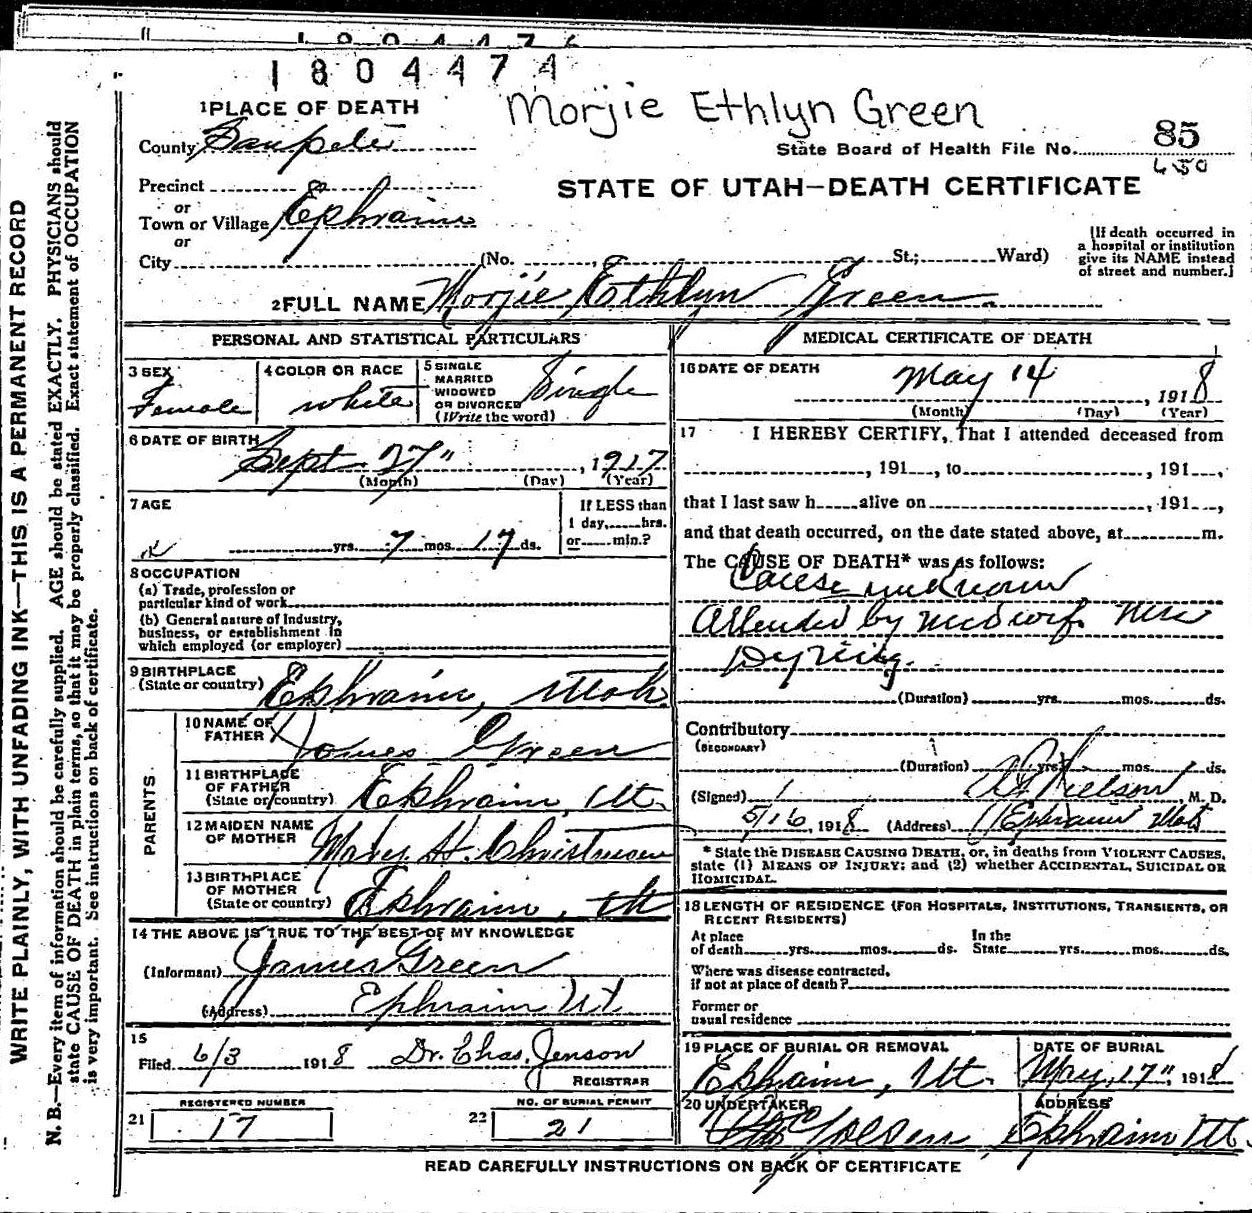 1804474
Morjie Ethlyn Green
1 PLACE OF DEATH
County Sanpete
State Board of Health File No. 85
650
Precinct
or
Town or Village Ephraim
or
City
STATE OF UTAH—DEATH CERTIFICATE
(No. St.; Ward)
[If death occurred in
a hospital or institution
give its NAME instead
of street and number.]
2 FULL NAME Morjie Ethlyn Green.
PERSONAL AND STATISTICAL PARTICULARS
3 SEX
Female
4 COLOR OR RACE
white
5 SINGLE
MARRIED
WIDOWED
OR DIVORCED
(Write the word)
Single
6 DATE OF BIRTH
Sept. 27", 1917
(Month) (Day) (Year)
7 AGE
yrs. 7 mos. 17 ds.
If LESS than
1 day, hrs.
or min.?
8 OCCUPATION
(a) Trade, profession or
particular kind of work
(b) General nature of Industry,
business, or establishment in
which employed (or employer)
9 BIRTHPLACE
(State or country) Ephraim, Utah.
PARENTS
10 NAME OF
FATHER James Green
11 BIRTHPLACE
OF FATHER
(State or country) Ephraim, Ut.
12 MAIDEN NAME
OF MOTHER Mary H. Christensen
13 BIRTHPLACE
OF MOTHER
(State or country) Ephraim, Ut
14 THE ABOVE IS TRUE TO THE BEST OF MY KNOWLEDGE
(Informant) James Green
(Address) Ephraim Ut
15
Filed 6/3 1918 Dr. Chas. Jenson
REGISTRAR
REGISTERED NUMBER
21 17
NO. OF BURIAL PERMIT
22 21
MEDICAL CERTIFICATE OF DEATH
16 DATE OF DEATH
May 14, 1918
(Month) (Day) (Year)
17 I HEREBY CERTIFY, That I attended deceased from
, 191 , to , 191 ,
that I last saw h alive on , 191 ,
and that death occurred, on the date stated above, at m.
The CAUSE OF DEATH* was as follows:
Cause unknown
Attended by midwif. Mrs
(Duration) yrs. mos. ds.
Contributory
(SECONDARY)
(Duration) yrs. mos. ds.
(Signed) Nielson M. D.
5/16, 1918 (Address) Ephraim Utah
* State the DISEASE CAUSING DEATH, or, in deaths from VIOLENT CAUSES,
state (1) MEANS OF INJURY; and (2) whether ACCIDENTAL, SUICIDAL OR
HOMICIDAL.
18 LENGTH OF RESIDENCE (FOR HOSPITALS, INSTITUTIONS, TRANSIENTS, OR
RECENT RESIDENTS)
At place
of death yrs. mos. ds.
In the
State yrs. mos. ds.
Where was disease contracted,
if not at place of death?
Former or
usual residence
19 PLACE OF BURIAL OR REMOVAL
Ephraim, Ut.
DATE OF BURIAL
May, 17", 1918
20 UNDERTAKER
ADDRESS
Ephraim Ut.
READ CAREFULLY INSTRUCTIONS ON BACK OF CERTIFICATE
WRITE PLAINLY, WITH UNFADING INK—THIS IS A PERMANENT RECORD
N. B.—Every item of information should be carefully supplied. AGE should be stated EXACTLY. PHYSICIANS should
state CAUSE OF DEATH in plain terms, so that it may be properly classified. Exact statement of OCCUPATION
is very important. See instructions on back of certificate.